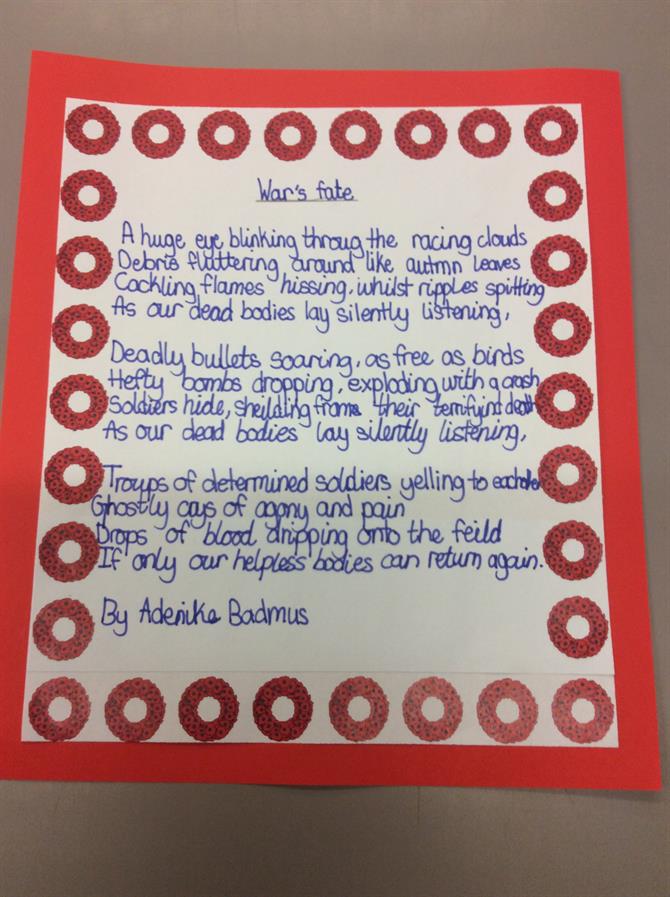 War's fate
A huge eye blinking throug the racing clouds
Debris fluttering around like autmn leaves
Cackling flames hissing, whilst ripples spitting
As our dead bodies lay silently listening,
Deadly bullets soaring, as free as birds
Hefty bombs dropping, exploding with a crash
Soldiers hide, sheilding from their terrifying death
As our dead bodies lay silently listening,
Troups of determined soldiers yelling to eachother
Ghostly crys of agony and pain
Drops of blood dripping onto the feild
If only our helpless bodies can return again.
By Adenike Badmus